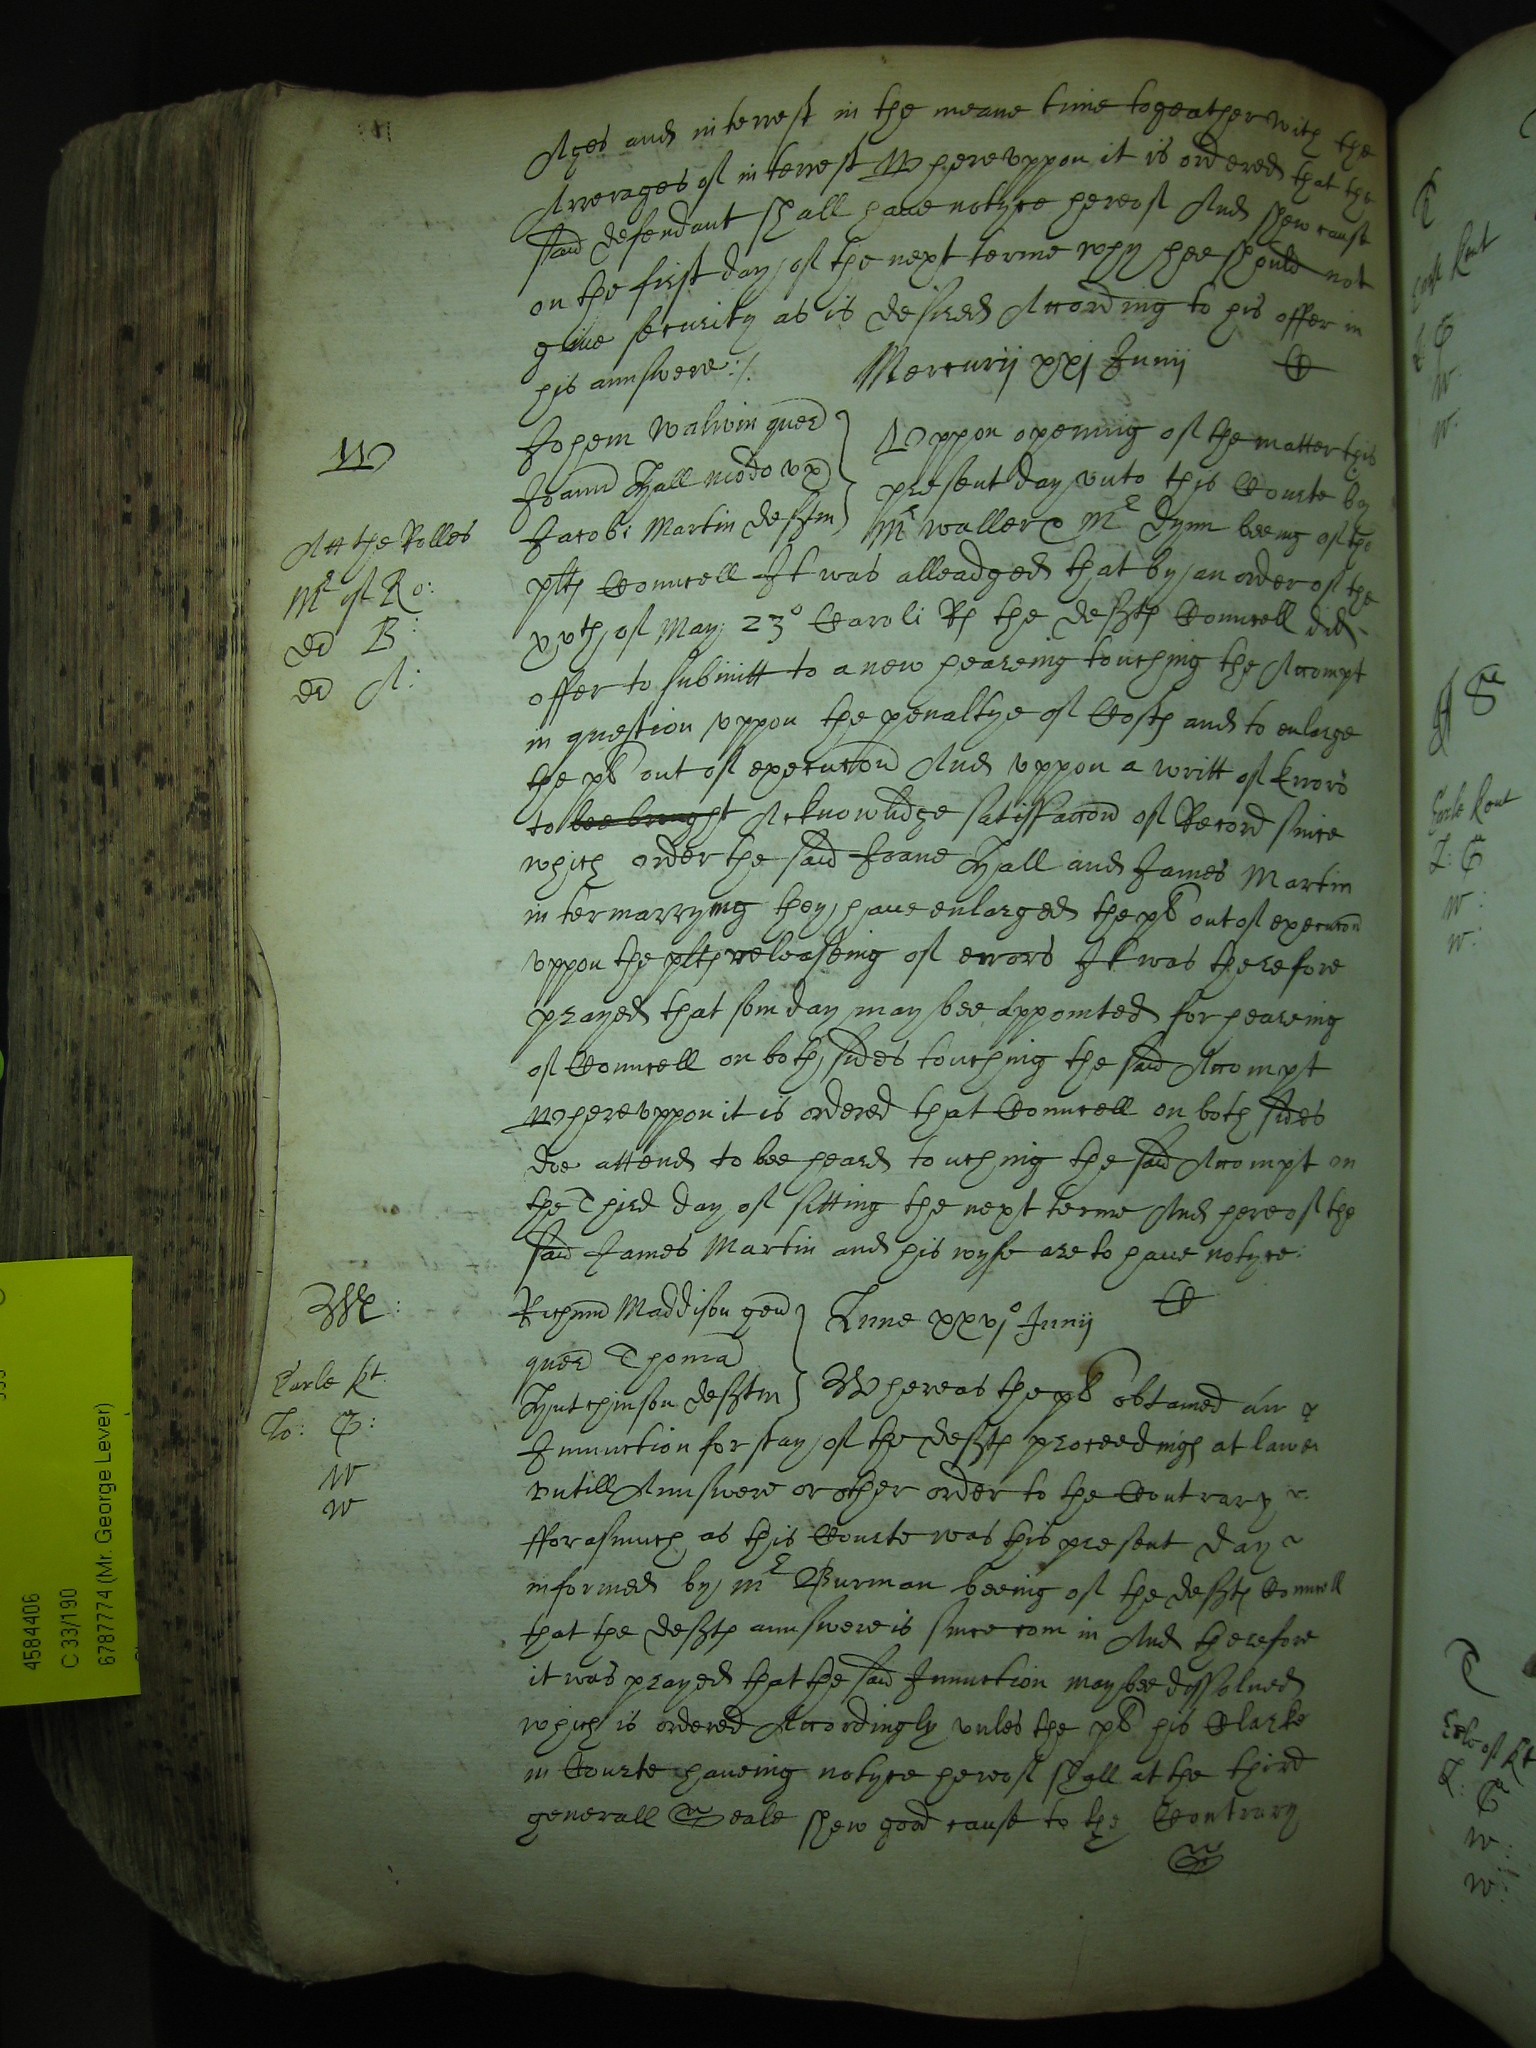 Ages and interrest in the meane time togeather with the
Arrerages of interrest Whereuppon it is ordered that the
said defendant shall have notyce hereof And shew cause
on the first day of the next terme why hee should not
give security as is desired According to his offer in
his annswere:/.
Mercurij xxj Junij
W
Johem Walwin quer
Joann Hall modo ux
Jacobi Martin deften
Att the Rolles
Mr of Ro:
ed B:
ed A:
Uppon opening of the matter this
present day unto this Courte by
Mr Waller & Mr Dynn beeing of the
plts Councell It was alleadged that by an order of the
xvth of May 23o Caroli Rs the defts Councell did
offer to submitt to a new heareing touching the Accompt
in question uppon the penaltye of Costs and to enlarge
the pl out of execucion And uppon a writt of Errors
to bee brought Acknowlidge satisfaccon of Record since
which order the said Joane Hall and James Martin
intermarrying they have enlarged the pl out of execucon
uppon the plts releaseing of errors It was therefore
prayed that som day may bee appointed for heareing
of Councell on both sides touching the said Accompt
Whereuppon it is ordered that Councell on both sides
doe attend to bee heard touching the said Accompt on
the Third day of sitting the next terme And hereof the
said James Martin and his wyfe are to have notyce:
Richum Maddison gen
quer Thoma
Hutchinson deften
Lune xxvjo Junij
Earle kt.
Lo: G:
W
W
Whereas the pl obtained an
Iniunction for stay of the defts proceedings at lawe
untill Annswere or other order to the Contrary
fforasmuch as this Courte was this present day
informed by mr Burman beeing of the defts Councell
that the defts annswere is since com in And therefore
it was prayed that the said Iniunction may bee dissolved
which is ordered Accordingly unles the pl his Clarke
in Courte haveing notyce hereof shall at the third
generall Seale shew good cause to the Contrary
Earle Kent
L: G
W:
W:
4584406
C 33/190
6787774 (Mr. George Lever)